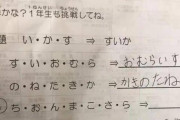 かな？1年生も挑戦してね。
題 い・か・す ⇒ すいか
す・い・お・む・ら ⇒ おむらいす
の・ね・た・き・か ⇒ かきのたね
ち・お・ん・ま・こ・さ・ら ⇒